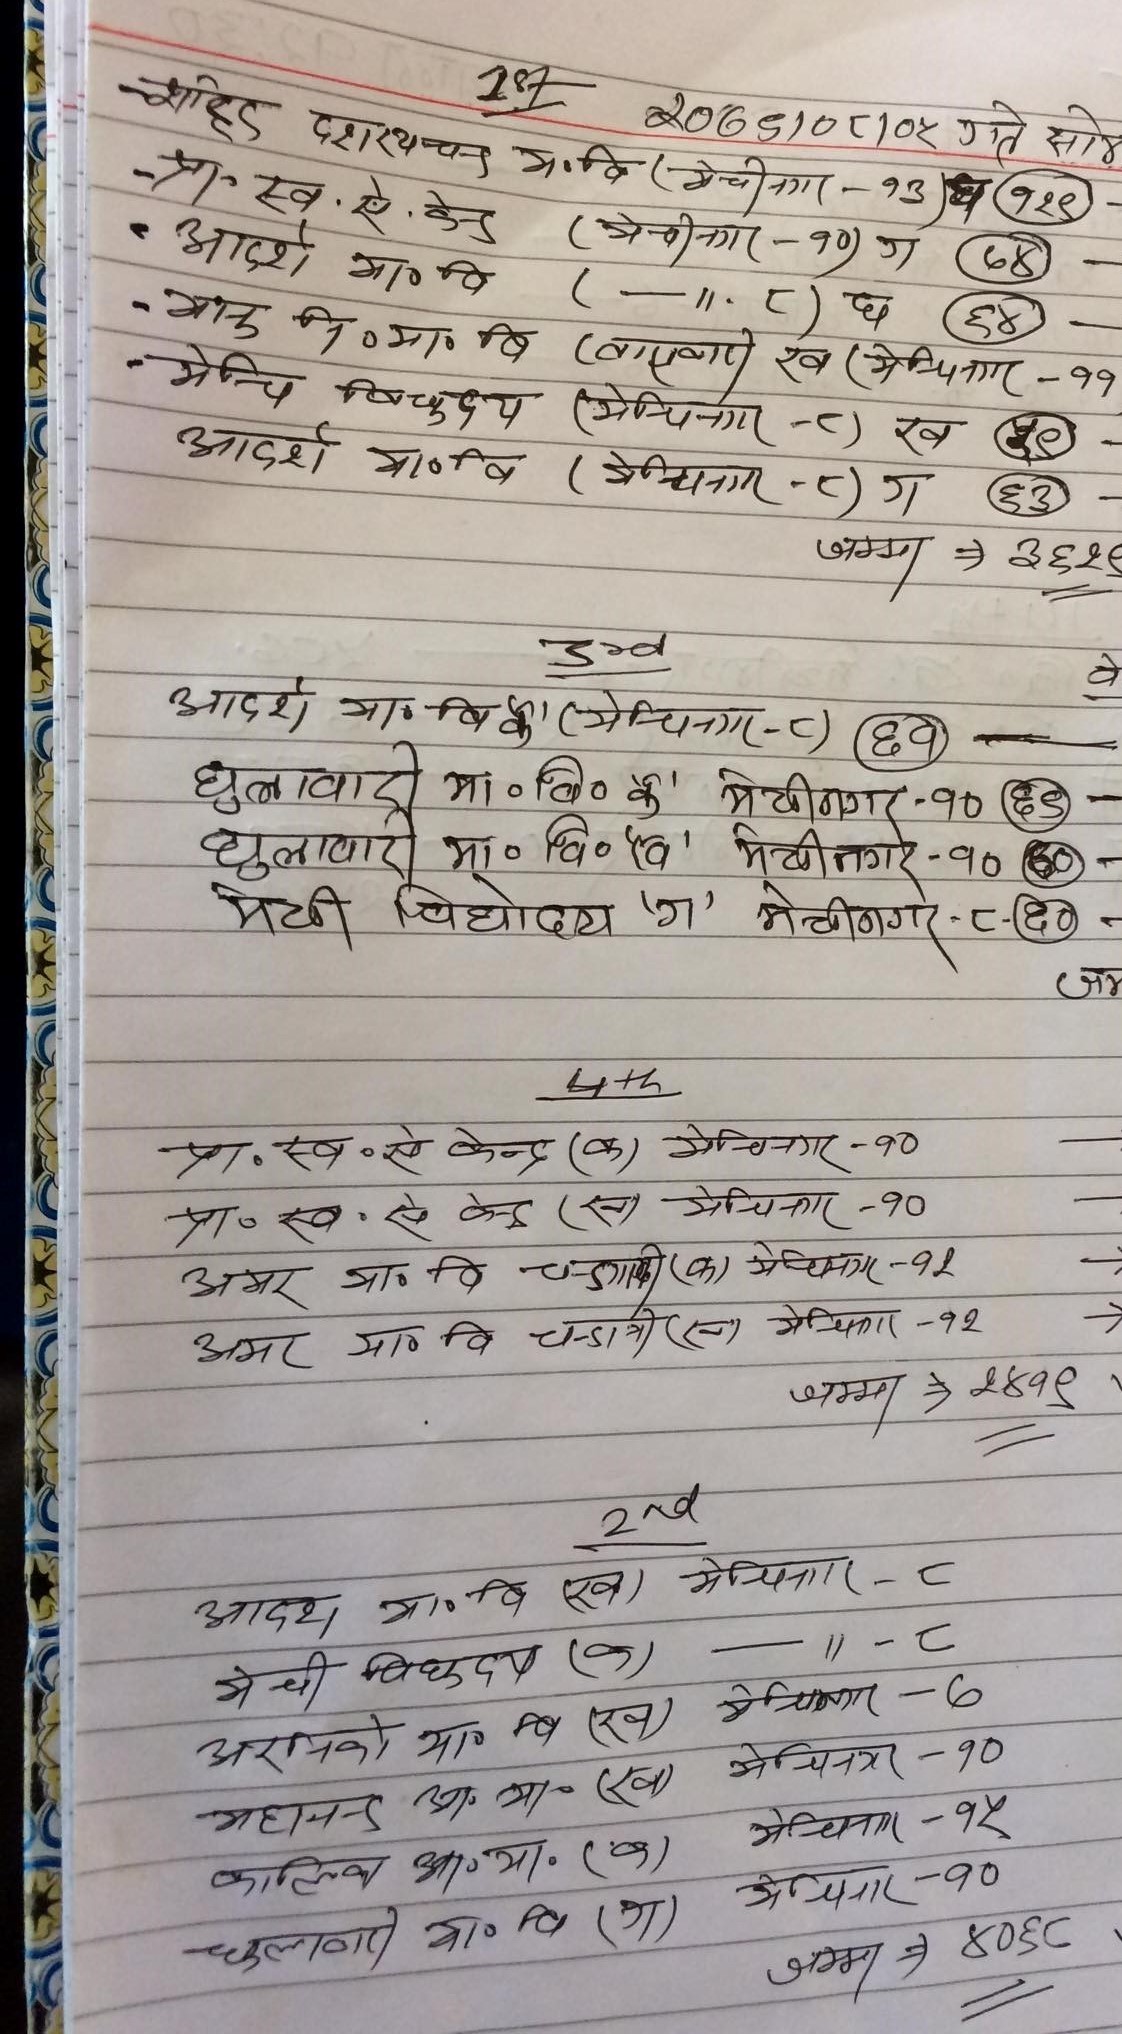 1st
२०७९।०८।०५ गते सोम
- शहिद दशरथचन्द मा.वि (मेचीनगर - १३) घ १२९ -
- प्रा. स्व. से. केन्द्र (मेचीनगर - १०) ग ७४ -
. आदर्श मा० वि ( — ॥. ८) घ ६४ -
- भानु नि०मा० वि ख (मेचिनगर - ११
- मेचि विद्युदय (मेचिनगर - ८) ख -
आदर्श मा०वि (मेचिनगर - ८) ग ६३ -
जम्मा ⇒ ३६२९
3rd
आदर्श मा०वि 'क' (मेचिनगर - ८) —
वे
धुलावारी मा० वि० 'क' मेचीनगर - १० ६९ -
धुलावारी मा० वि० 'ख' मेचीनगर - १० ७० -
मेची विद्योदय 'ग' मेचीनगर - ८ - ६० -
जम
4th
प्रा. स्व. से केन्द्र (क) मेचिनगर - १०
प्रा० स्व. से केन्द्र (ख) मेचिनगर - १०
अमर मा० वि (क) मेचिनगर - १२ →
अमर मा० वि (ख) मेचिनगर - १२ →
जम्मा ⇒ २४१९
2nd
आदर्श मा० वि (ख) मेचिनगर - ८
मेची विद्युदय (क) — ॥ - ८
अरनिको मा० वि (ख) मेचिनगर - ७
महानन्द आ. मा. (ख) मेचिनगर - १०
कालिका आ०मा. (क) मेचिनगर - १५
धुलावारी मा० वि (ग) मेचिनगर - १०
जम्मा ⇒ ४०६८